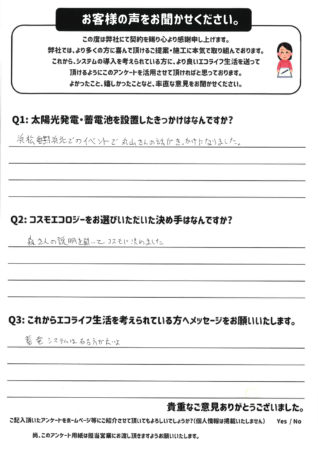 お客様の声をお聞かせください。
この度は弊社にて契約を賜り心より感謝申し上げます。
弊社では、より多くの方に喜んで頂けるご提案・施工に本気で取り組んでおります。
これから、システムの導入を考えられている方に、より良いエコライフ生活を送って
頂けるようにこのアンケートを活用させて頂ければと思っております。
よかったこと、嬉しかったことなど、率直な意見をお聞かせください。
Q1: 太陽光発電・蓄電池を設置したきっかけはなんですか?
浜松 でのイベントで丸山さんの きっかけになりました。
Q2: コスモエコロジーをお選びいただいた決め手はなんですか?
森さんの説明を聞いてコスモに決めました
Q3: これからエコライフ生活を考えられている方へメッセージをお願いいたします。
蓄電システムは
貴重なご意見ありがとうございました。
ご記入頂いたアンケートをホームページ等にご紹介させて頂いてもよろしいでしょうか?(個人情報は掲載いたしません) Yes / No
尚、このアンケート用紙は担当営業にお渡し頂きますようお願いいたします。